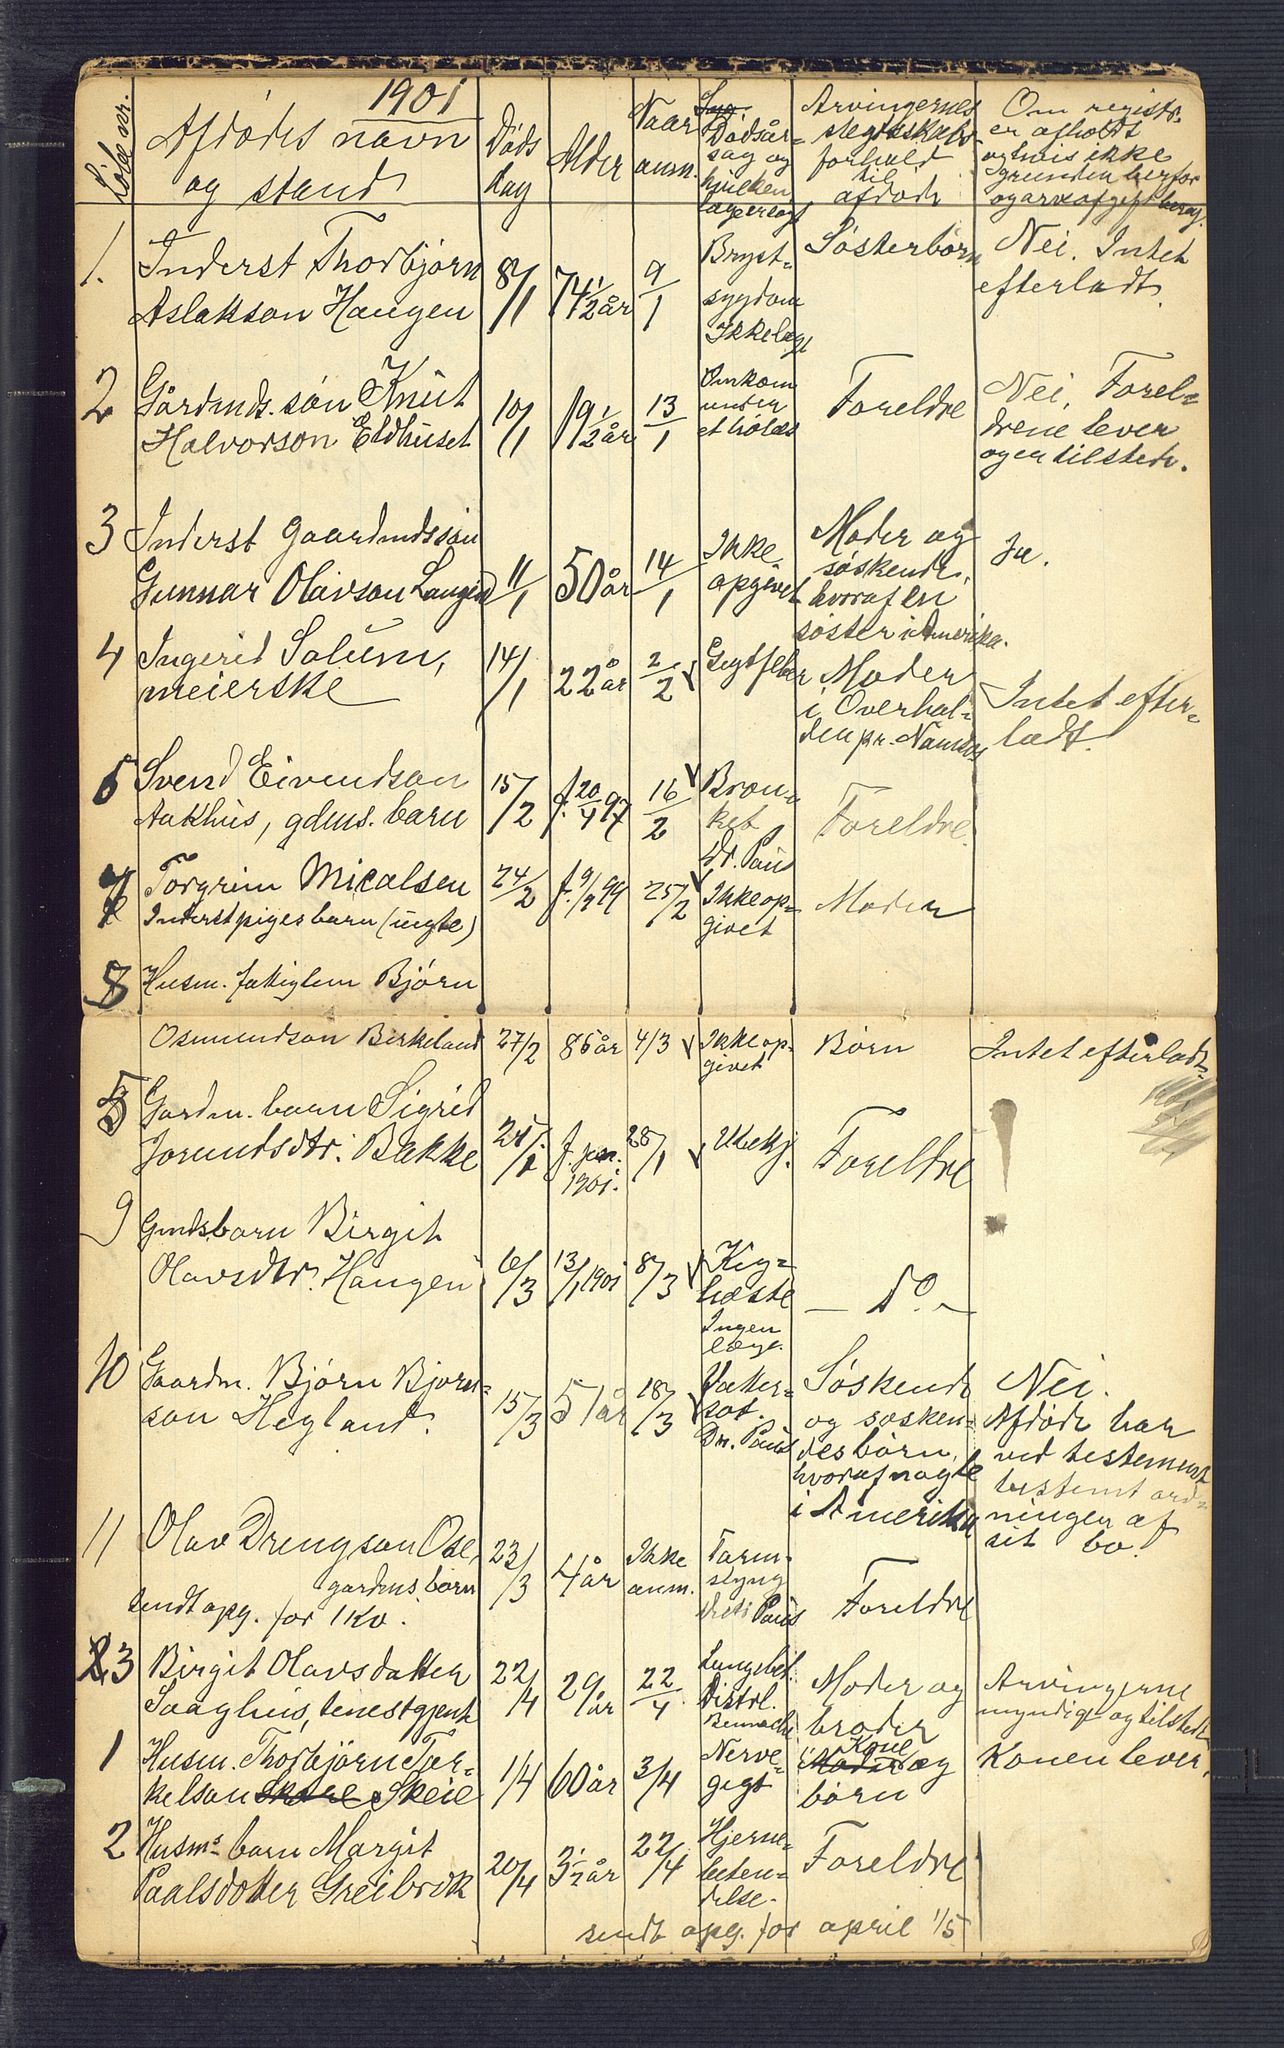 1901
Løbe nr.
Afdødes navn
og stand
Døds
dag
Alder
Naar
anm.
Dødsår-
sag og
hvilken
læge søgt
Arvingernes
slegtskabs-
forhold
til
afdøde
Om registr.
er afholdt
og hvis ikke
grunden herfor
og arveafgift bereg.
1. Inderst Thorbjørn
Aslakson Haugen
8/1
74 1/2 år
9/1
Bryst-
sygdom
Ikke læge
Søsterbørn
Nei. Intet
efterladt.
2 Gårdmds. søn Knut
Halvorson Eldhuset
10/1
19 1/2 år
13/1
Omkom
under
et hølæs
Foreldre
Nei. Forel-
drene lever
og er tilstede.
3 Inderst Gaardmdssøn
Gunnar Olavson Langeid
11/1
50 år
14/1
Ikke
opgivet
Moder og
søskende,
hvoraf en
søster i Amerika.
Ja.
4 Ingerid Solum,
meierske
14/1
22 år
2/2
Gigtfeber
Moder
i Overhal-
den pr. Namsos
Intet efter-
ladt.
5 Svend Eivendson
Aakhus, gdms. barn
15/2
f. 20/4 97
16/2
Bron-
kit
Dr. Paus
Foreldre.
7 Torgrim Micalsen
Inderstpiges barn (uegte)
24/2
f. 9/9 99
25/2
Ikke op-
givet
Moder
8 Husm. fattiglem Bjørn
Osmundson Birkeland
27/2
86 år
4/3
Ikke op-
givet
Børn
Intet efterladt.
Gardm. barn Sigrid
Jorundsdtr. Bakke
f. jan.
1901.
28/1
Ubekj.
Foreldre
9 Gmds. barn Birgit
Olavsdtr. Haugen
6/3
13/1 1901
8/3
Kig-
hoste
Ingen
læge.
— Do. —
10 Gaardm. Bjørn Bjorn-
son Hegland.
15/3
51 år
18/3
Vater-
sot.
Dr. Paus
Søskende
og søsken-
desbørn,
hvoraf nogle
i Amerika
Nei.
Afdøde har
ved testement
bestemt ord-
ningen af
sit bo.
11 Olav Drengson Ose,
gardms. børn
sendt opg. for 1 Kv.
23/3
4 år
Ikke
anm.
Tarm-
slyng
Paus
Foreldre
23 Birgit Olavsdatter
Saaghus, tenestgjent
22/4
29 år
22/4
Lungebet.
Distrl.
Benneche
Moder og
broder
Arvingerne
myndige og tilstede
1 Husm. Thorbjørn Tar-
kelson Skeie
1/4
60 år
3/4
Nerve-
gigt
Kone
og
børn
Konen lever.
2 Husms barn Margit
Paalsdotter Greibrok
20/4
3 1/2 år
22/4
Hjerne-
beten-
delse.
Foreldre
sendt opg. for april 1/5